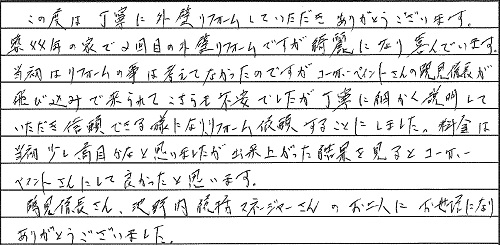 この度は丁寧に外壁リフォームしていただきありがとうございます。
築44年の家で2回目の外壁リフォームですが綺麗になり喜んでいます。
当初はリフォームの事は考えてなかったのですがコーホーペイントさんの鵄見信長が
飛び込みで来られてこちらも不安でしたが丁寧に細かく説明して
いただき信頼できる様になりリフォーム依頼することにしました。料金は
当初少し高目かなと思いましたが出来上がった結果を見るとコーホー
ペイントさんにして良かったと思います。
見信長さん、池野内 マネージャーさんのお二人にお世話になり
ありがとうございました。